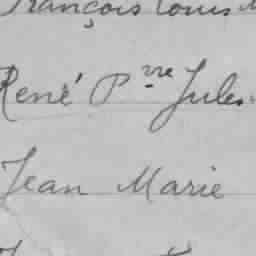 François Louis M
René Pʳʳᵉ Jules.
Jean Marie